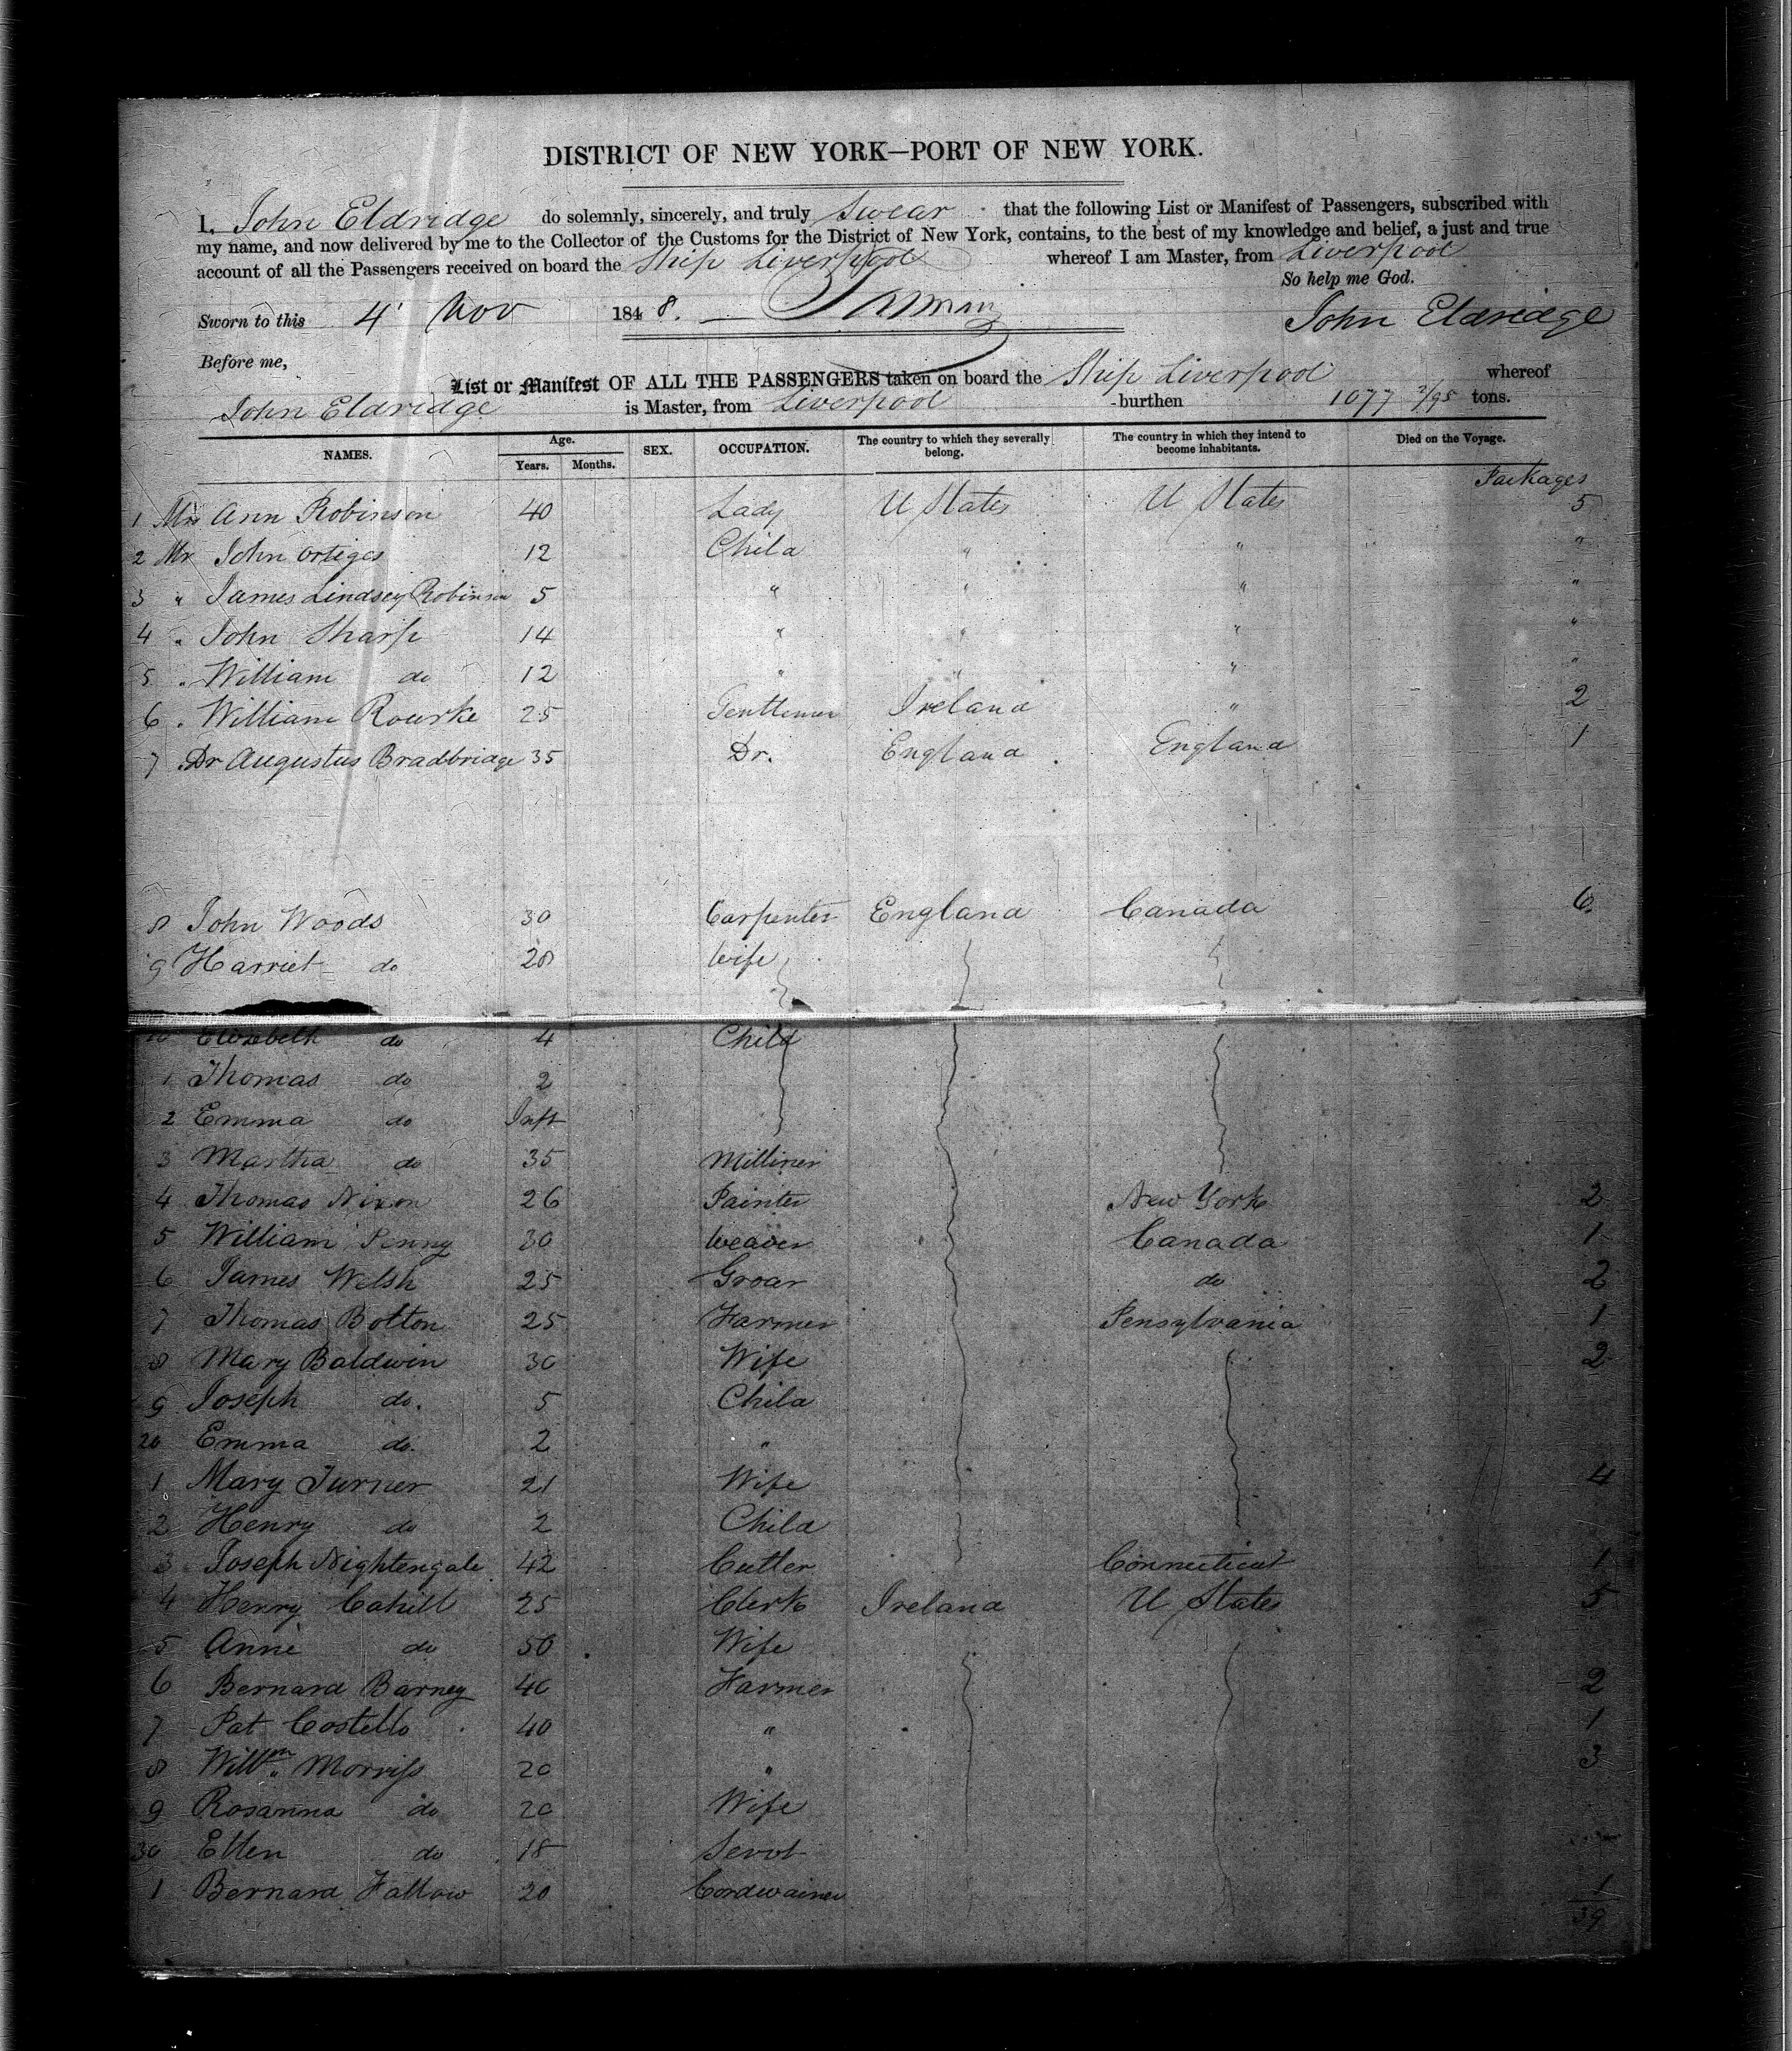 DISTRICT OF NEW YORK—PORT OF NEW YORK.
I, John Eldridge do solemnly, sincerely, and truly Swear that the following List or Manifest of Passengers, subscribed with
my name, and now delivered by me to the Collector of the Customs for the District of New York, contains, to the best of my knowledge and belief, a just and true
account of all the Passengers received on board the Ship Liverpool whereof I am Master, from Liverpool
So help me God.
Sworn to this 4 Nov 1848. John Eldridge
Before me,
List or Manifest OF ALL THE PASSENGERS taken on board the Ship Liverpool whereof
John Eldridge is Master, from Liverpool burthen 1077 2/95 tons.
NAMES. Age. Years. Months. SEX. OCCUPATION. The country to which they severally belong. The country in which they intend to become inhabitants. Died on the Voyage.
Packages
1 Mrs Ann Robinson 40 Lady U States U States 5
2 Mr John Orteges 12 Child " " "
3 " James Lindsey Robinson 5 " " " "
4 " John Sharp 14 " " " "
5 " William do 12 " " " "
6 " William Rourke 25 Gentleman Ireland " 2
7 Dr Augustus Bradbridge 35 Dr. England England 1
8 John Woods 30 Carpenter England Canada 6
9 Harriet do 28 Wife
10 Elizebeth do 4 Child
1 Thomas do 2
2 Emma do Inft
3 Martha do 35 Milliner
4 Thomas Nixon 26 Painter New York 2
5 William Penny 30 Weaver Canada 1
6 James Welsh 25 Groar do 2
7 Thomas Bolton 25 Farmer Pensylvania 1
8 Mary Baldwin 30 Wife 2
9 Joseph do. 5 Child
20 Emma do. 2 "
1 Mary Turner 21 Wife 4
2 Henry do 2 Child
3 Joseph Nightengale 42 Cutler Connecticut 1
4 Henry Cahill 25 Clerk Ireland U States 5
5 Anne do 50 Wife
6 Bernard Barney 40 Farmer 2
7 Pat Costello 40 " 1
8 Willm. Morriss 20 " 3
9 Rosanna do 20 Wife
30 Ellen do 18 Servt
1 Bernard Fallow 20 Cordwainer 1
39